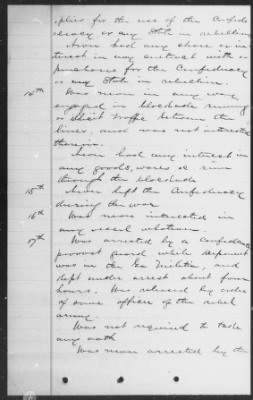 plies for the use of the Confed-
eracy or any State in rebellion
Never had any share or in-
terest in any contract with or
purchases for the Confederacy
or any State in rebellion.
14th Was never in any way
engaged in blockade running
or illicit traffic between the
lines, and was not interested
therein.
Never had any interest in
any goods, wares &c run
through the blockade
15th Never left the Confederacy
during the war
16th Was never interested in
any vessel whatever.
17th Was arrested by a Confederate
provost guard while deponent
was in the Ga Militia, and
kept under arrest about four
hours. Was released by order
of some officer of the rebel
army.
Was not required to take
any oath
Was never arrested by the